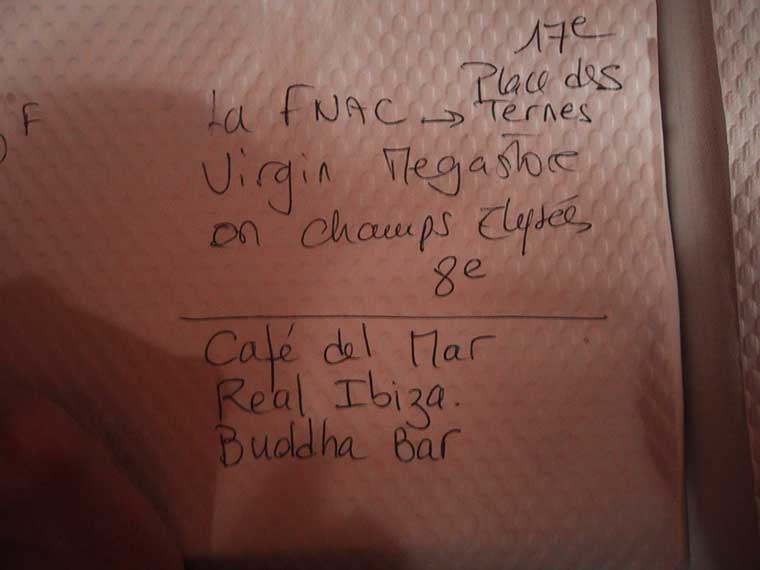 17e
Place des
La FNAC → Ternes
F
Virgin Megastore
on champs Elysées
8e
Café del Mar
Real Ibiza.
Buddha Bar